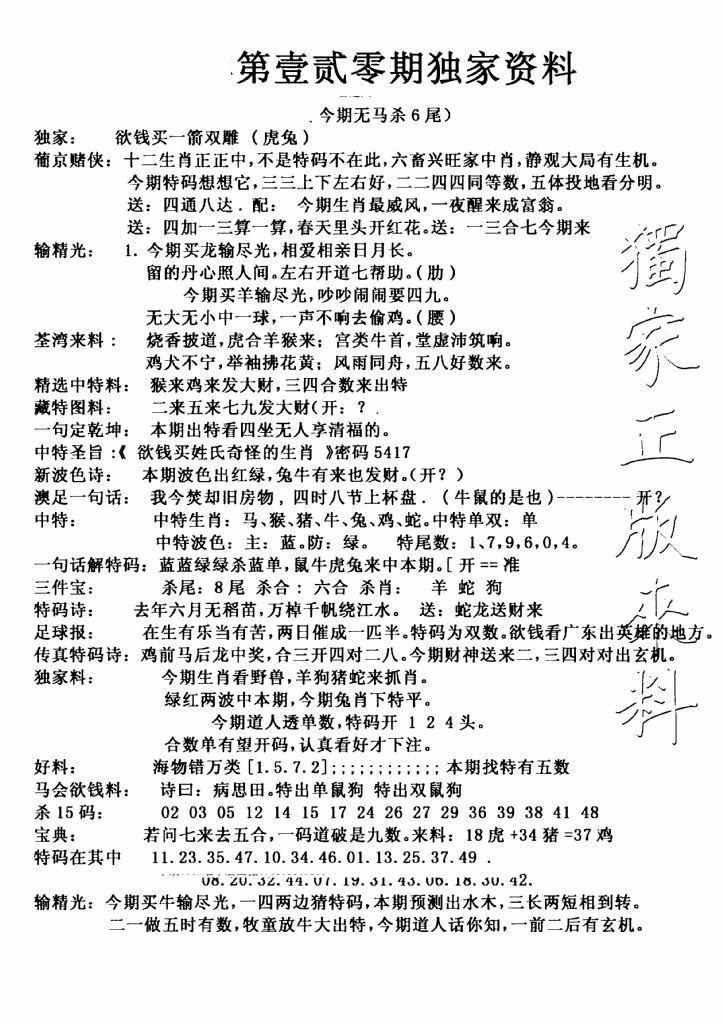 第壹贰零期独家资料
今期无马杀6尾）
独家： 欲钱买一箭双雕 （虎兔）
葡京赌侠：十二生肖正正中，不是特码不在此，六畜兴旺家中肖，静观大局有生机。
今期特码想想它，三三上下左右好，二二四四同等数，五体投地看分明。
送：四通八达．配： 今期生肖最威风，一夜醒来成富翁。
送：四加一三算一算，春天里头开红花。送：一三合七今期来
输精光： 1. 今期买龙输尽光，相爱相亲日月长。
留的丹心照人间。左右开道七帮助。（肋）
今期买羊输尽光，吵吵闹闹要四九。
无大无小中一球，一声不响去偷鸡。（腰）
荃湾来料： 烧香披道，虎合羊猴来；宫类牛首，堂虚沛筑响。
鸡犬不宁，举袖拂花黄；风雨同舟，五八好数来。
精选中特料： 猴来鸡来发大财，三四合数来出特
藏特图料： 二来五来七九发大财（开：？.
一句定乾坤： 本期出特看四坐无人享清福的。
中特圣旨：《 欲钱买姓氏奇怪的生肖 》密码5417
新波色诗： 本期波色出红绿，兔牛有来也发财。（开？）
澳足一句话： 我今焚却旧房物，四时八节上杯盘．（牛鼠的是也）--------开?
中特： 中特生肖：马、猴、猪、牛、兔、鸡、蛇。中特单双：单
中特波色：主：蓝。防：绿。 特尾数：1、7，9，6，0，4。
一句话解特码：蓝蓝绿绿杀蓝单，鼠牛虎兔来中本期。[ 开==准
三件宝： 杀尾：8尾 杀合：六合 杀肖： 羊 蛇 狗
特码诗： 去年六月无稻苗，万棹千帆绕江水。 送：蛇龙送财来
足球报： 在生有乐当有苦，两日催成一匹半。特码为双数。欲钱看广东出英雄的地方。
传真特码诗：鸡前马后龙中奖，合三开四对二八。今期财神送来二，三四对对出玄机。
独家料： 今期生肖看野兽，羊狗猪蛇来抓肖。
绿红两波中本期，今期兔肖下特平。
今期道人透单数，特码开 1 2 4头。
合数单有望开码，认真看好才下注。
好料： 海物错万类[1.5.7.2]；；；；；；；；；；；；本期找特有五数
马会欲钱料： 诗曰：病思田。特出单鼠狗 特出双鼠狗
杀15码： 02 03 05 12 14 15 17 24 26 27 29 36 39 38 41 48
宝典： 若问七来去五合，一码道破是九数。来料：18虎+34猪=37鸡
特码在其中 11.23.35.47.10.34.46.01.13.25.37.49 .
08.20.32.44.07.19.31.43.06.18.30.42.
输精光：今期买牛输尽光，一四两边猜特码，本期预测出水木，三长两短相到转。
二一做五时有数，牧童放牛大出特，今期道人话你知，一前二后有玄机。
獨家正版来料